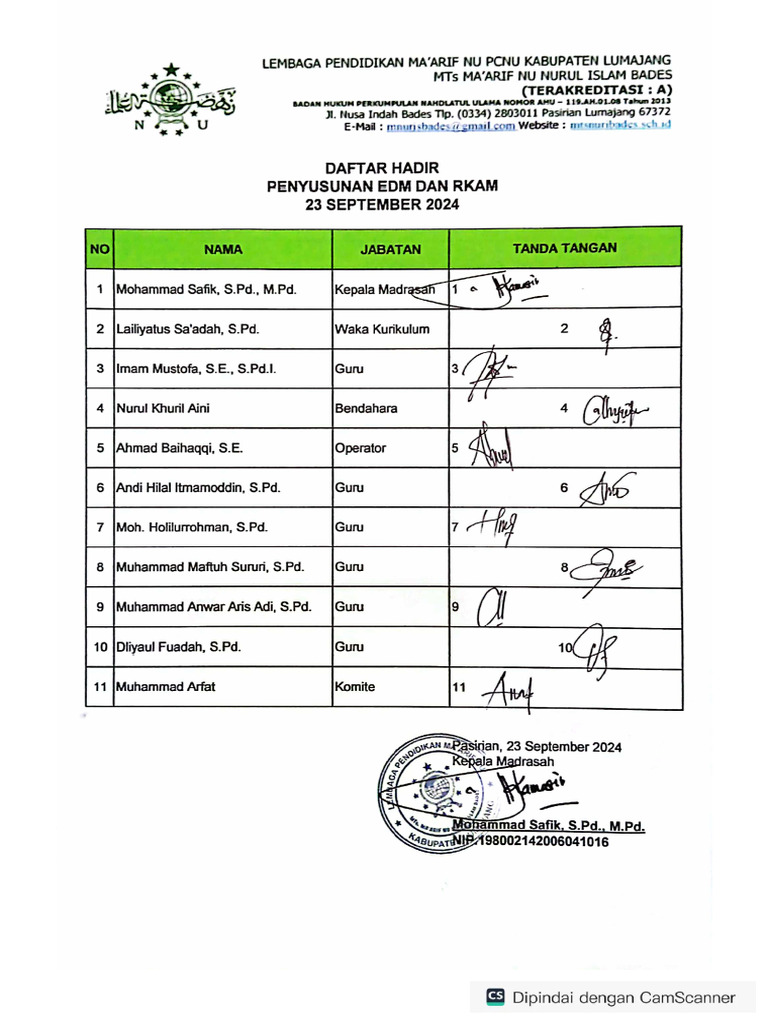 LEMBAGA PENDIDIKAN MA'ARIF NU PCNU KABUPATEN LUMAJANG
MTs MA'ARIF NU NURUL ISLAM BADES
(TERAKREDITASI : A)
BADAN HUKUM PERKUMPULAN NAHDLATUL ULAMA NOMOR AHU – 119.AH.01.08 Tahun 2013
Jl. Nusa Indah Bades Tlp. (0334) 2803011 Pasirian Lumajang 67372
E-Mail : mnurisbades@gmail.com Website : mtsnuribades.sch.id
N U
DAFTAR HADIR
PENYUSUNAN EDM DAN RKAM
23 SEPTEMBER 2024
NO NAMA JABATAN TANDA TANGAN
1 Mohammad Safik, S.Pd., M.Pd. Kepala Madrasah 1
2 Lailiyatus Sa'adah, S.Pd. Waka Kurikulum 2
3 Imam Mustofa, S.E., S.Pd.I. Guru 3
4 Nurul Khuril Aini Bendahara 4
5 Ahmad Baihaqqi, S.E. Operator 5
6 Andi Hilal Itmamoddin, S.Pd. Guru 6
7 Moh. Holilurrohman, S.Pd. Guru 7
8 Muhammad Maftuh Sururi, S.Pd. Guru 8
9 Muhammad Anwar Aris Adi, S.Pd. Guru 9
10 Dliyaul Fuadah, S.Pd. Guru 10
11 Muhammad Arfat Komite 11
Pasirian, 23 September 2024
Kepala Madrasah
LEMBAGA PENDIDIKAN MA'ARIF
KABUPATEN
Mohammad Safik, S.Pd., M.Pd.
NIP.198002142006041016
CS Dipindai dengan CamScanner